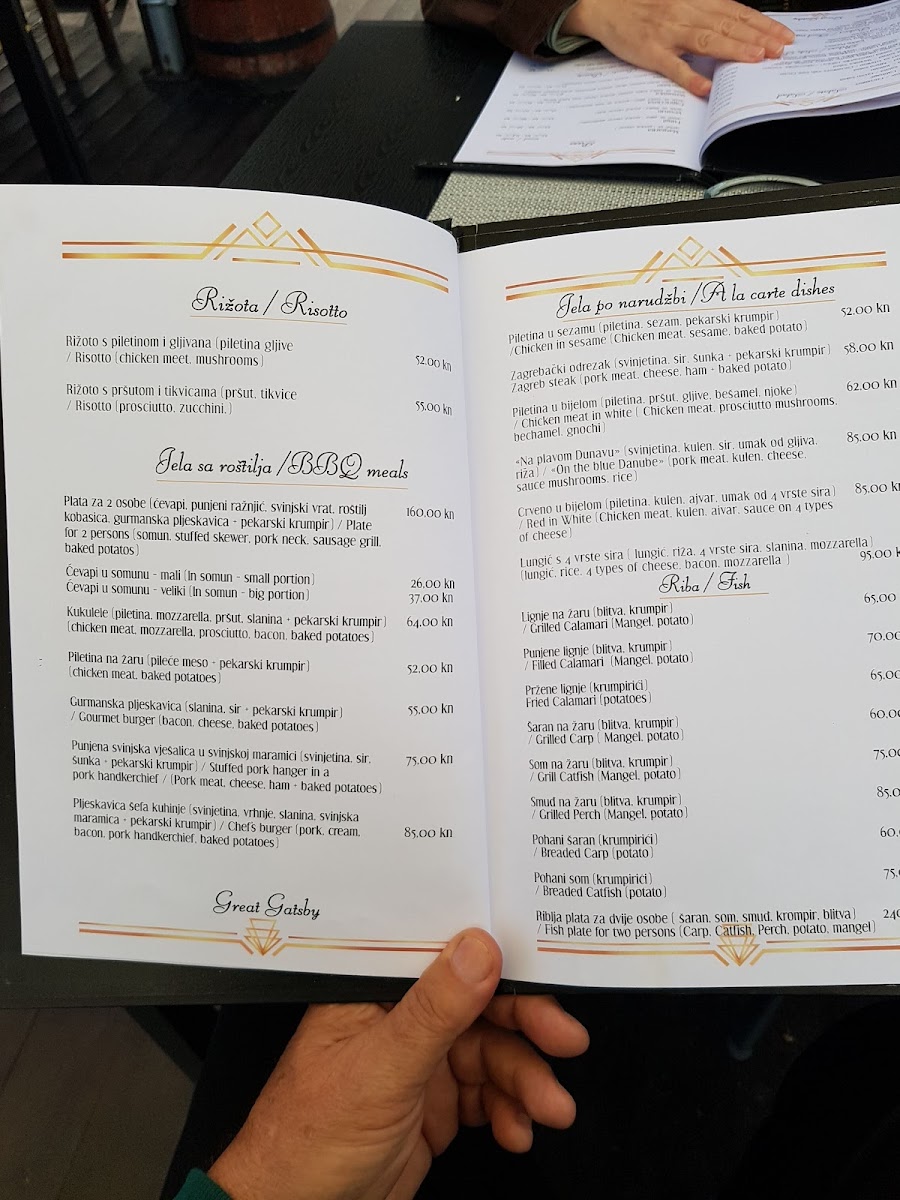 Rižota / Risotto
Rižoto s piletinom i gljivana (piletina gljive
/ Risotto (chicken meet, mushrooms)
52.00 kn
Rižoto s pršutom i tikvicama (pršut, tikvice
/ Risotto (prosciutto, zucchini,)
55.00 kn
Jela sa roštilja / BBQ meals
Plata za 2 osobe (ćevapi, punjeni ražnjić, svinjski vrat, roštilj
kobasica, gurmanska pljeskavica + pekarski krumpir) / Plate
for 2 persons (somun, stuffed skewer, pork neck, sausage grill,
baked potatos)
160.00 kn
Ćevapi u somunu - mali (In somun - small portion)
26.00 kn
Ćevapi u somunu - veliki (In somun - big portion)
37.00 kn
Kukulele (piletina, mozzarella, pršut, slanina + pekarski krumpir)
(chicken meat, mozzarella, prosciutto, bacon, baked potatoes)
64.00 kn
Piletina na žaru (pileće meso + pekarski krumpir)
(chicken meat, baked potatoes)
52,00 kn
Gurmanska pljeskavica (slanina, sir + pekarski krumpir)
/ Gourmet burger (bacon, cheese, baked potatoes)
55.00 kn
Punjena svinjska vješalica u svinjskoj maramici (svinjetina, sir,
šunka + pekarski krumpir) / Stuffed pork hanger in a
pork handkerchief / (Pork meat, cheese, ham + baked potatoes)
75.00 kn
Pljeskavica šefa kuhinje (svinjetina, vrhnje, slanina, svinjska
maramica + pekarski krumpir) / Chefs burger (pork, cream,
bacon, pork handkerchief, baked potatoes)
85.00 kn
Great Gatsby
Jela po narudžbi / A la carte dishes
Piletina u sezamu (piletina, sezam, pekarski krumpir)
/Chicken in sesame (Chicken meat, sesame, baked potato)
52.00 kn
Zagrebački odrezak (svinjetina, sir, šunka + pekarski krumpir)
Zagreb steak (pork meat, cheese, ham + baked potato)
58.00 kn
Piletina u bijelom (piletina, pršut, gljive, bešamel, njoke)
/ Chicken meat in white ( Chicken meat, prosciutto mushrooms,
bechamel, gnochi)
62.00 kn
«Na plavom Dunavu» (svinjetina, kulen, sir, umak od gljiva,
riža) / «On the blue Danube» (pork meat, kulen, cheese,
sauce mushrooms, rice)
85.00 kn
Crveno u bijelom (piletina, kulen, ajvar, umak od 4 vrste sira)
/ Red in White (Chicken meat, kulen, aivar, sauce on 4 types
of cheese)
85.00 kn
Lungić s 4 vrste sira ( lungić, riža, 4 vrste sira, slanina, mozzarella)
(lungić, rice, 4 types of cheese, bacon, mozzarella )
95.00 kn
Riba / Fish
Lignje na žaru (blitva, krumpir)
/ Grilled Calamari (Mangel, potato)
65.00
Punjene lignje (blitva, krumpir)
/ Filled Calamari (Mangel, potato)
70.00
Pržene lignje (krumpirići)
Fried Calamari (potatoes)
65.00
Šaran na žaru (blitva, krumpir)
/ Grilled Carp ( Mangel, potato)
60.00
Som na žaru (blitva, krumpir)
/ Grill Catfish (Mangel, potato)
75.00
Smuđ na žaru (blitva, krumpir)
/ Grilled Perch (Mangel, potato)
85.0
Pohani šaran (krumpirići)
/ Breaded Carp (potato)
60.
Pohani som (krumpirići)
/ Breaded Catfish (potato)
75.
Riblja plata za dvije osobe ( šaran, som, smuđ, krompir, blitva)
/ Fish plate for two persons (Carp, Catfish, Perch, potato, mangel)
240